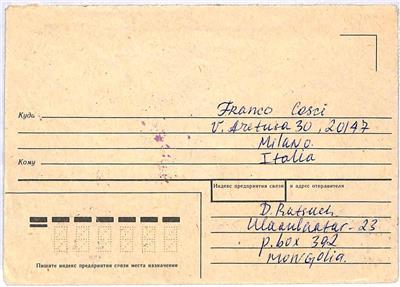 Куда
Franco Cosci
V. Aretusa 30, 20147
Milano.
Кому
Italia
Индекс предприятия связи и адрес отправителя
Ulaanbaatar-23
p.box 392
Mongolia.
Пишите индекс предприятия связи места назначения